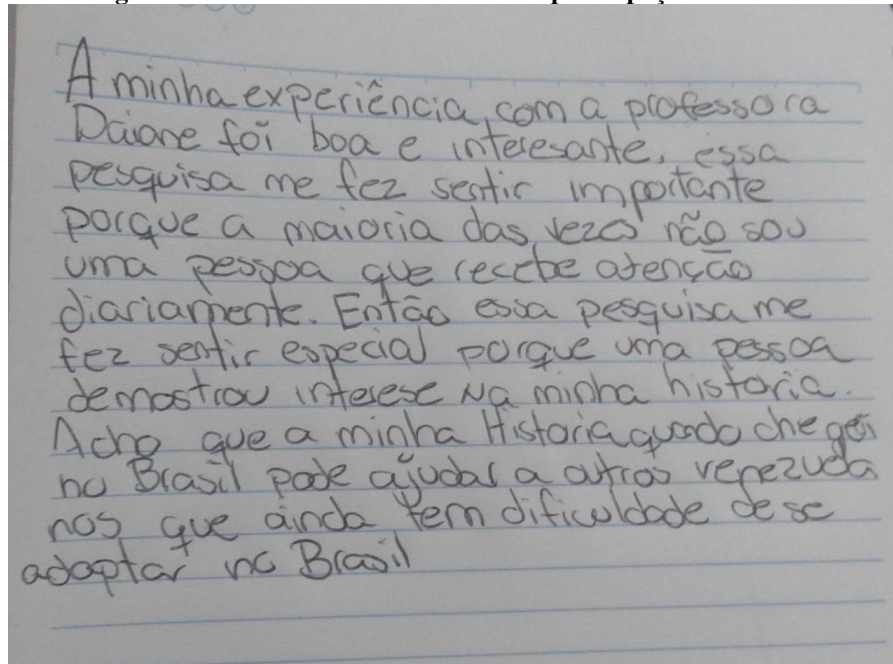 A minha experiência, com a professora
Daiane foi boa e interesante, essa
pesquisa me fez sentir importante
porque a maioria das vezes não sou
uma pessoa que recebe atenção
diariamente. Então essa pesquisa me
fez sentir especial porque uma pessoa
demostrou interese na minha historia.
Acho que a minha Historia quando chegei
no Brasil pode ajudar a outros venezuela
nos que ainda tem dificuldade de se
adaptar no Brasil